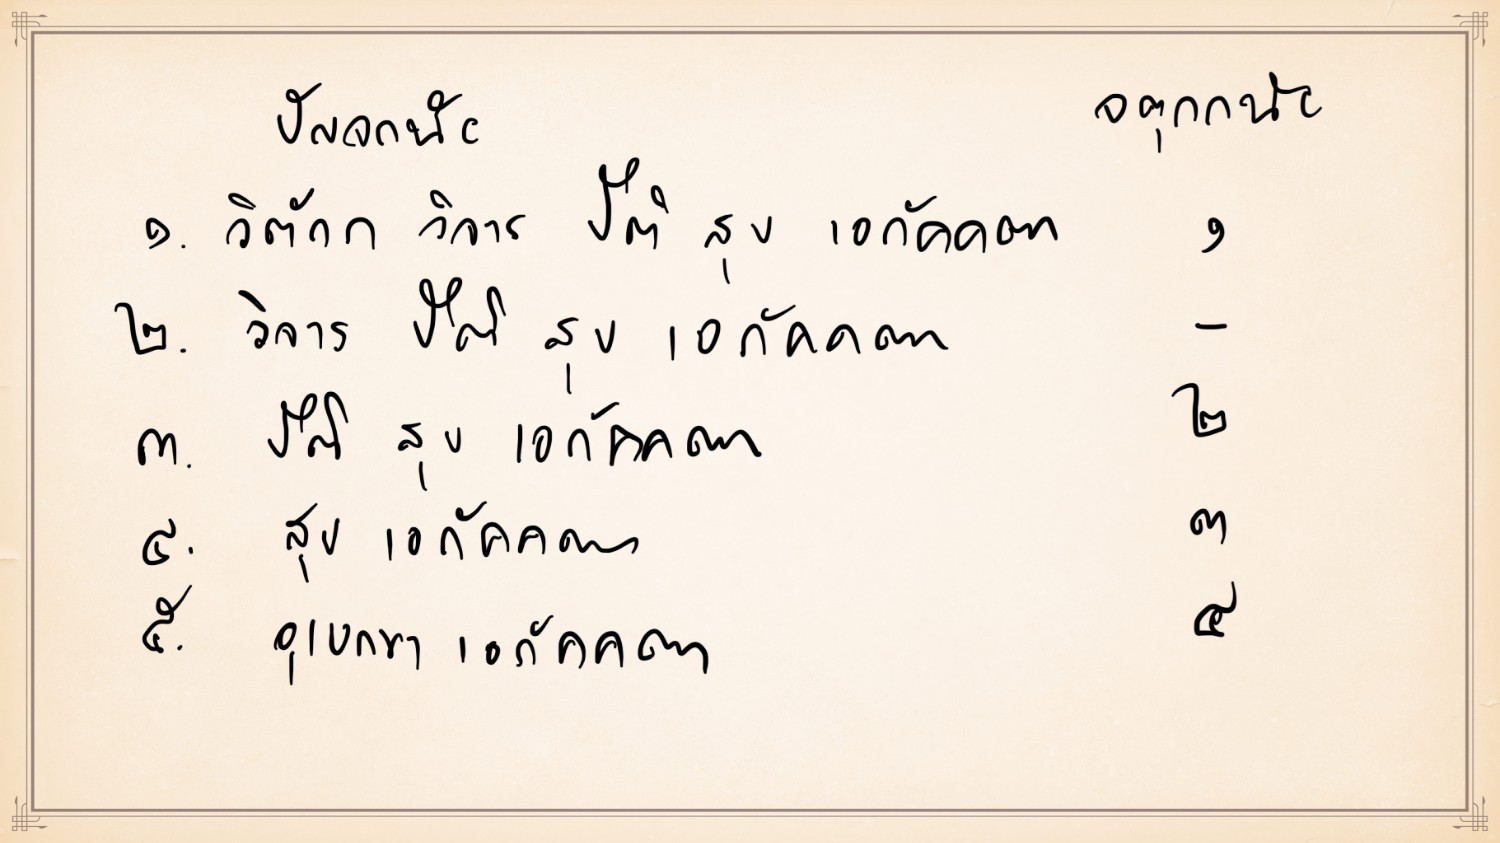 ปัญจกนัย จตุกกนัย
๑. วิตักก วิจาร ปีติ สุข เอกัคคตา ๑
๒. วิจาร ปีติ สุข เอกัคคตา –
๓. ปีติ สุข เอกัคคตา ๒
๔. สุข เอกัคคตา ๓
๕. อุเบกขา เอกัคคตา ๔